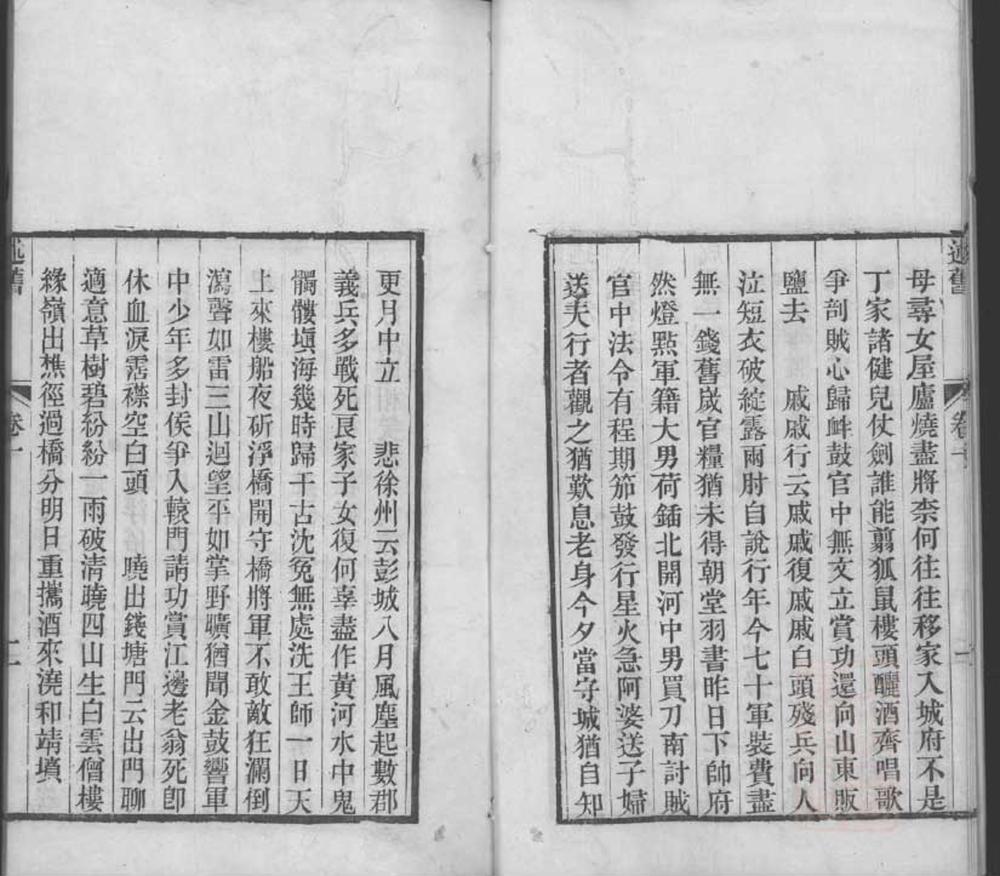 述舊 卷一 一
母尋女屋廬燒盡將柰何往往移家入城府不是
丁家諸健兒仗劍誰能翦狐鼠樓頭釃酒齊唱歌
爭剖賊心歸衅鼓官中無文立賞功還向山東販
鹽去 戚戚行云戚戚復戚戚白頭殘兵向人
泣短衣破綻露兩肘自說行年今七十軍裝費盡
無一錢舊歲官糧猶未得朝堂羽書昨日下帥府
然燈點軍籍大男荷鍤北開河中男買刀南討賊
官中法令有程期笳鼓發行星火急阿婆送子婦
送夫行者觀之猶歎息老身今夕當守城猶自知
更月中立 悲徐州云彭城八月風塵起數郡
義兵多戰死良家子女復何辜盡作黃河水中鬼
髑髏塡海幾時歸千古沈冤無處洗王師一日天
上來樓船夜斫浮橋開守橋將軍不敢敵狂瀾倒
瀉聲如雷三山迴望平如掌野曠猶聞金鼓響軍
中少年多封侯爭入轅門請功賞江邊老翁死卽
休血淚霑襟空白頭 曉出錢塘門云出門聊
適意草樹碧紛紛一雨破淸曉四山生白雲僧樓
緣嶺出樵徑過橋分明日重攜酒來澆和靖墳
述舊 卷一 二